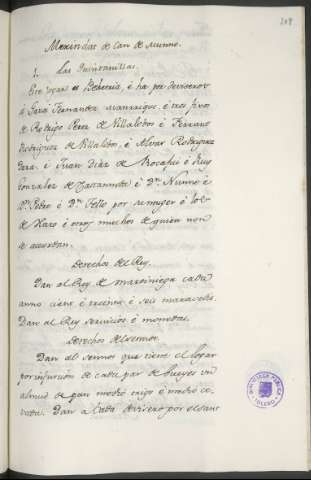 208
Merindat de Can de Munno.
1. Las Quintanillas.
Este logar es Behetria, é ha por deviseros
á Garci Fernandez Manrrique, é tres fijos
de Rodrigo Perez de Villalobos é Ferrand
Rodriguez de Villalobos, é Alvar Rodriguez
Daza é Juan Diaz de Rocafui é Ruy
Gonzalez de Castanneda é Dn. Nunno é
Dn. Pedro é Dn. Tello por su muger é los
de Haro é otros muchos de quien non
se acuerdan.
Derechos del Rey.
Dan al Rey de martiniega cada
anno ciento é treinta é seis maravedis.
Dan al Rey servicios é monedas.
Derechos del sennor.
Dan al sennor que tiene el logar
por infurcion de cada par de bueyes un
almud de pan medio trigo é medio ce-
vada. Dan á cada devisero por el Sant
BIBLIOTECA PUBLICA
TOLEDO